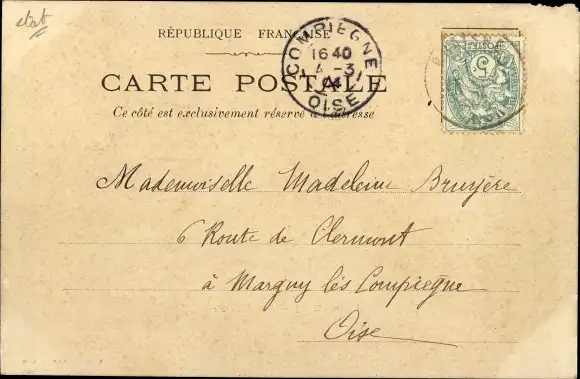 état
RÉPUBLIQUE FRANÇAISE
CARTE POSTALE
Ce côté est exclusivement réservé à l'adresse
COMPIEGNE
16 40
4 -3
04
OISE
5
Mademoiselle Madeleine Bruyère
6 Route de Clermont
à Margny lès Compiègne
Oise